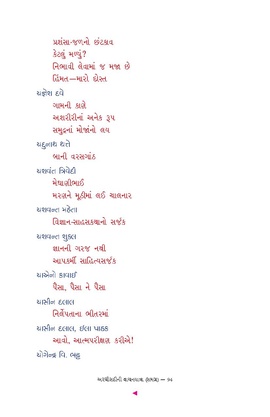 પ્રશંસા-જળનો છંટકાવ
કેટલું મળ્યું?
નિભાવી લેવામાં જ મજા છે
હિંમત—મારો દોસ્ત
યજ્ઞેશ દવે
ગામની કાણે
અશરીરીનાં અનેક રૂપ
સમુદ્રનાં મોજાંનો લવ
યદુનાથ થત્તે
બાની વરસગાંઠ
યશવંત ત્રિવેદી
મેઘાણીભાઈ
મરણને મૂઠીમાં લઈ ચાલનાર
યશવન્ત મહેતા
વિજ્ઞાન-સાહસકથાનો સર્જક
યશવન્ત શુક્લ
જ્ઞાનની ગરજ નથી
આપકર્મી સાહિત્યસર્જક
યાએનો કાવાઈ
પૈસા, પૈસા ને પૈસા
યાસીન દલાલ
નિર્લેપતાના ભીતરમાં
યાસીન દલાલ, ઇલા પાઠક
આવો, આત્મપરીક્ષણ કરીએ!
યોગેન્દ્ર વિ. ભટ્ટ
અરધીસદીની વાચનયાત્રા